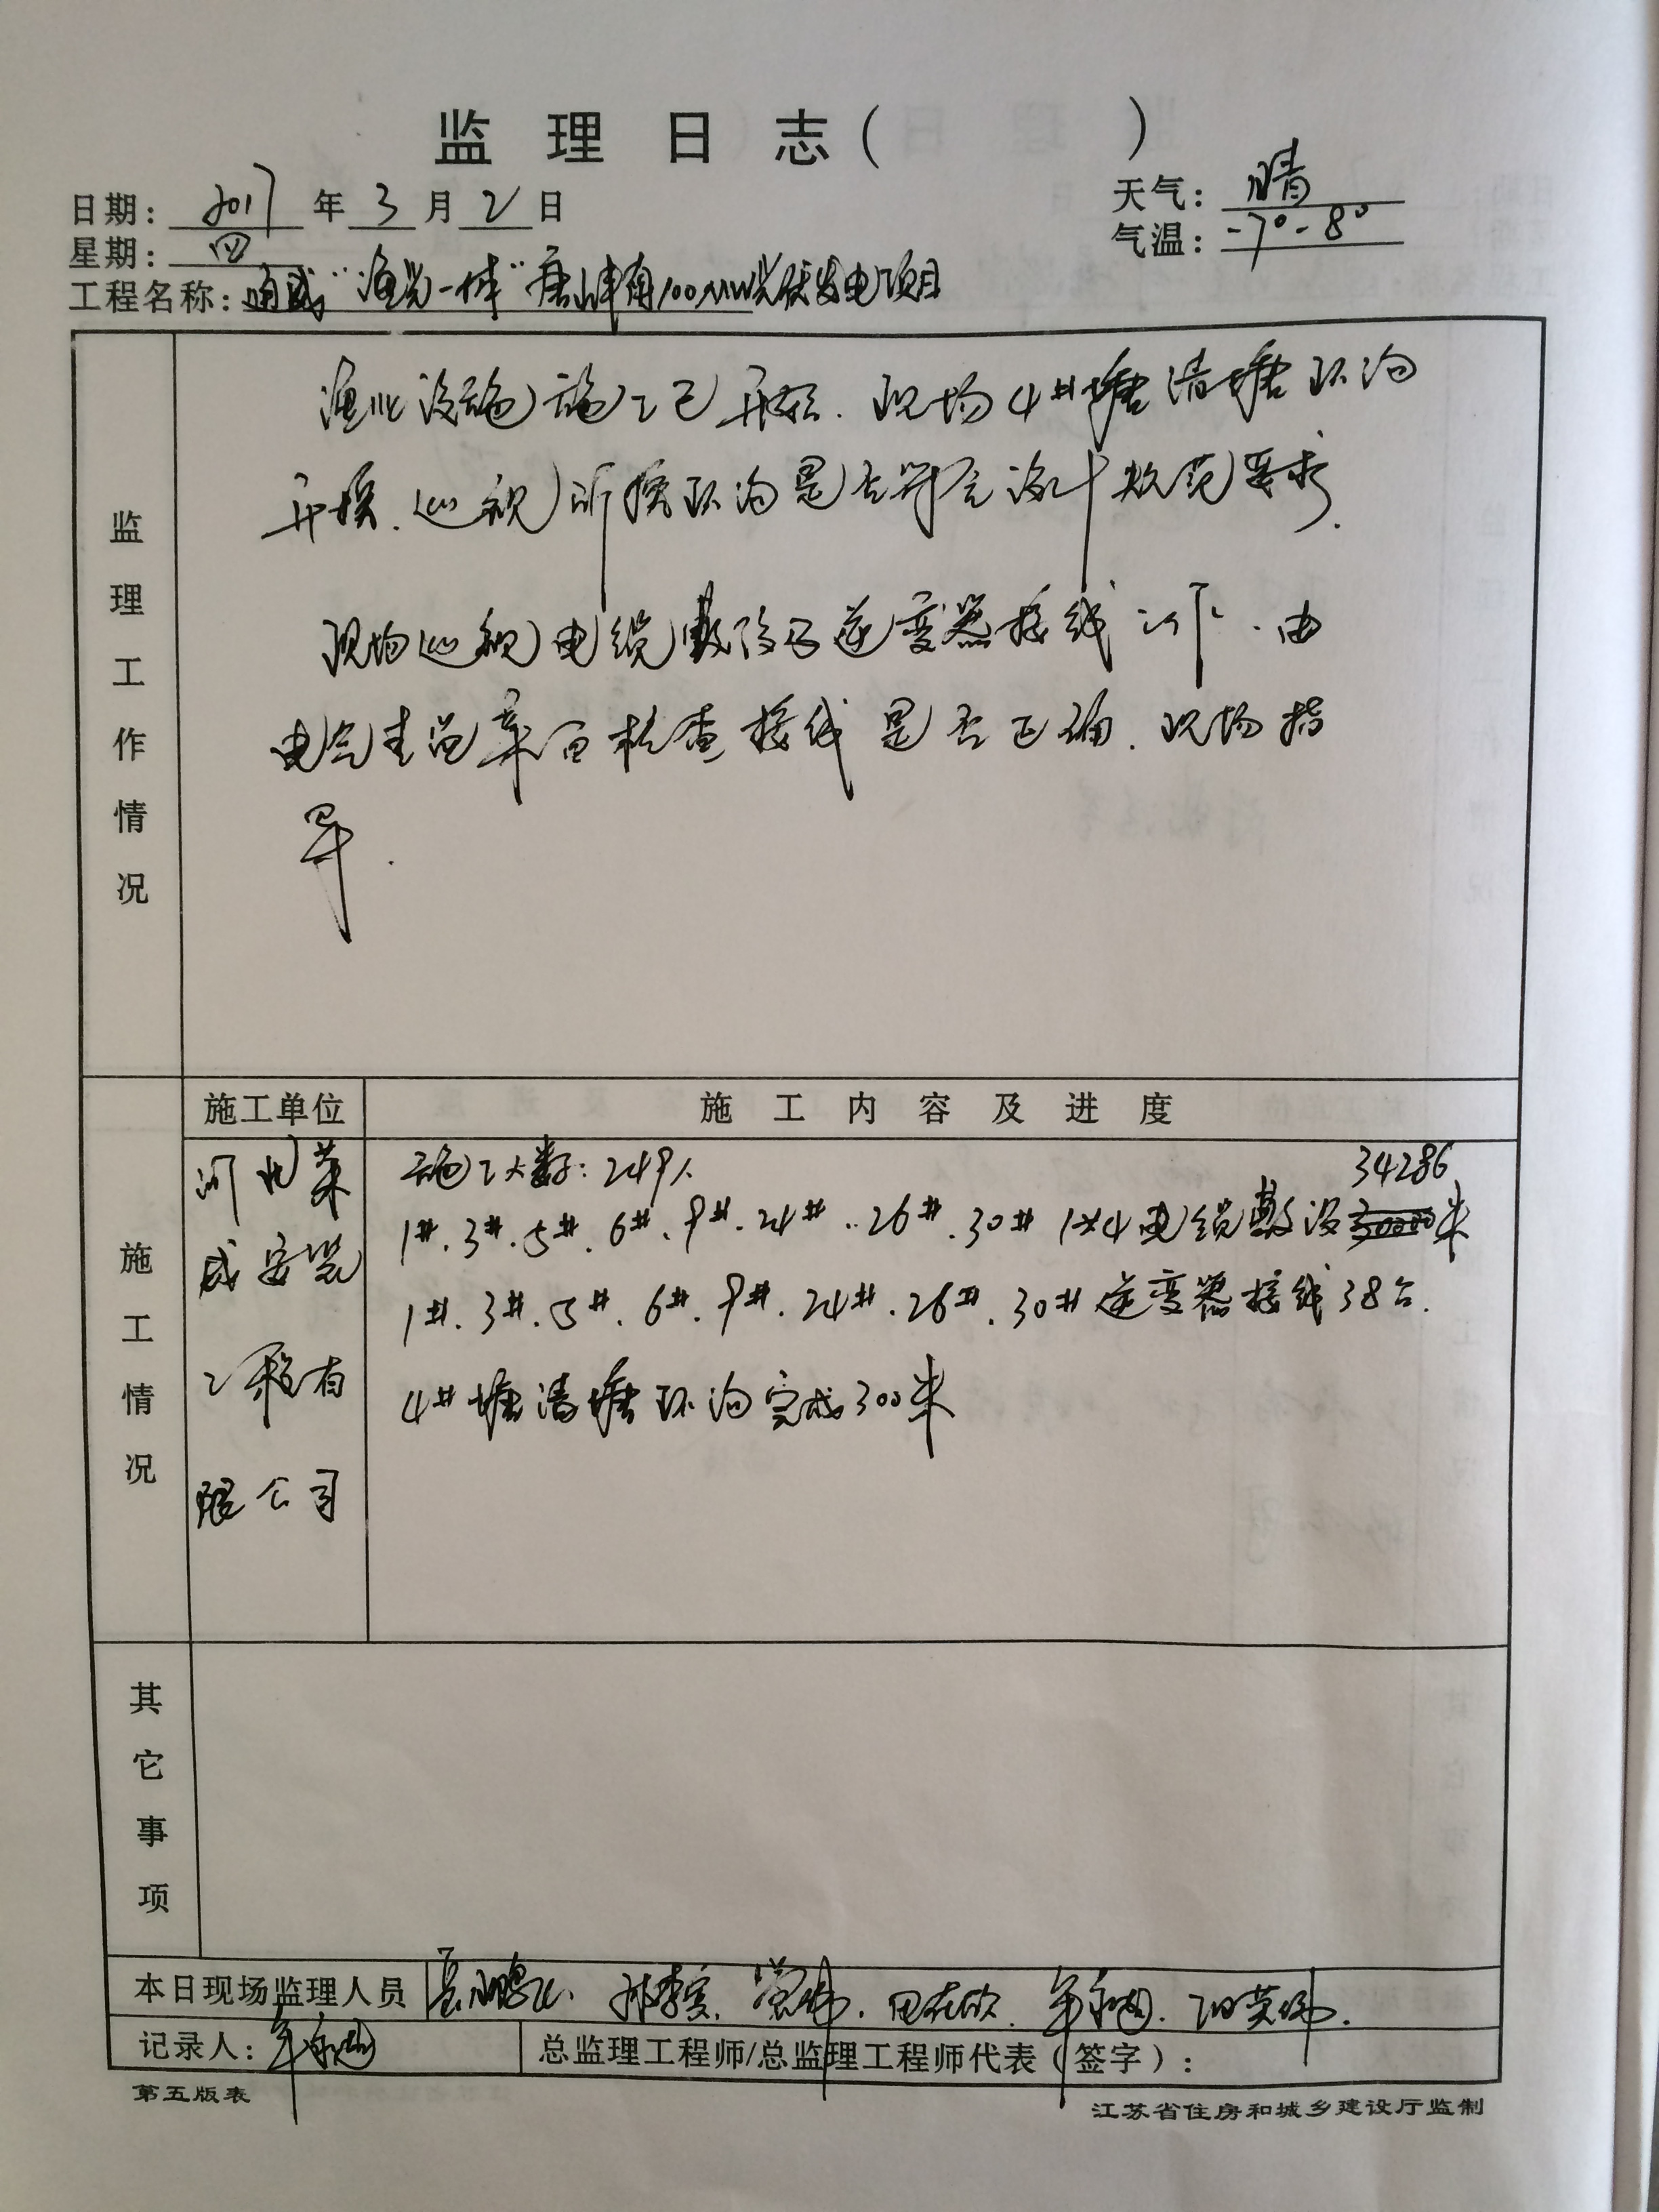 监理日志( )
日期: 2017 年 3 月 2 日
天气: 晴
星期: 四
气温: -7°-8°
工程名称: 通威"渔光一体"唐山丰南100MW光伏发电项目
监理工作情况
渔业设施施工已开始.现场4#塘清塘环沟
开挖.巡视所挖环沟是否符合设计规范要求.
现场巡视电缆敷设及逆变器接线工作.由
电气专监 核查接线是否正确.现场指
导.
施工单位
施工内容及进度
施工情况
河北荣
成安装
工程有
限公司
施工人数:249人
34286
1#.3#.5#.6#.9#.24#.26#.30# 1×4电缆敷设米
1#.3#.5#.6#.9#.24#.26#.30#逆变器接线38台.
4#塘清塘环沟完成300米
其它事项
本日现场监理人员
记录人:
总监理工程师/总监理工程师代表(签字):
第五版表
江苏省住房和城乡建设厅监制